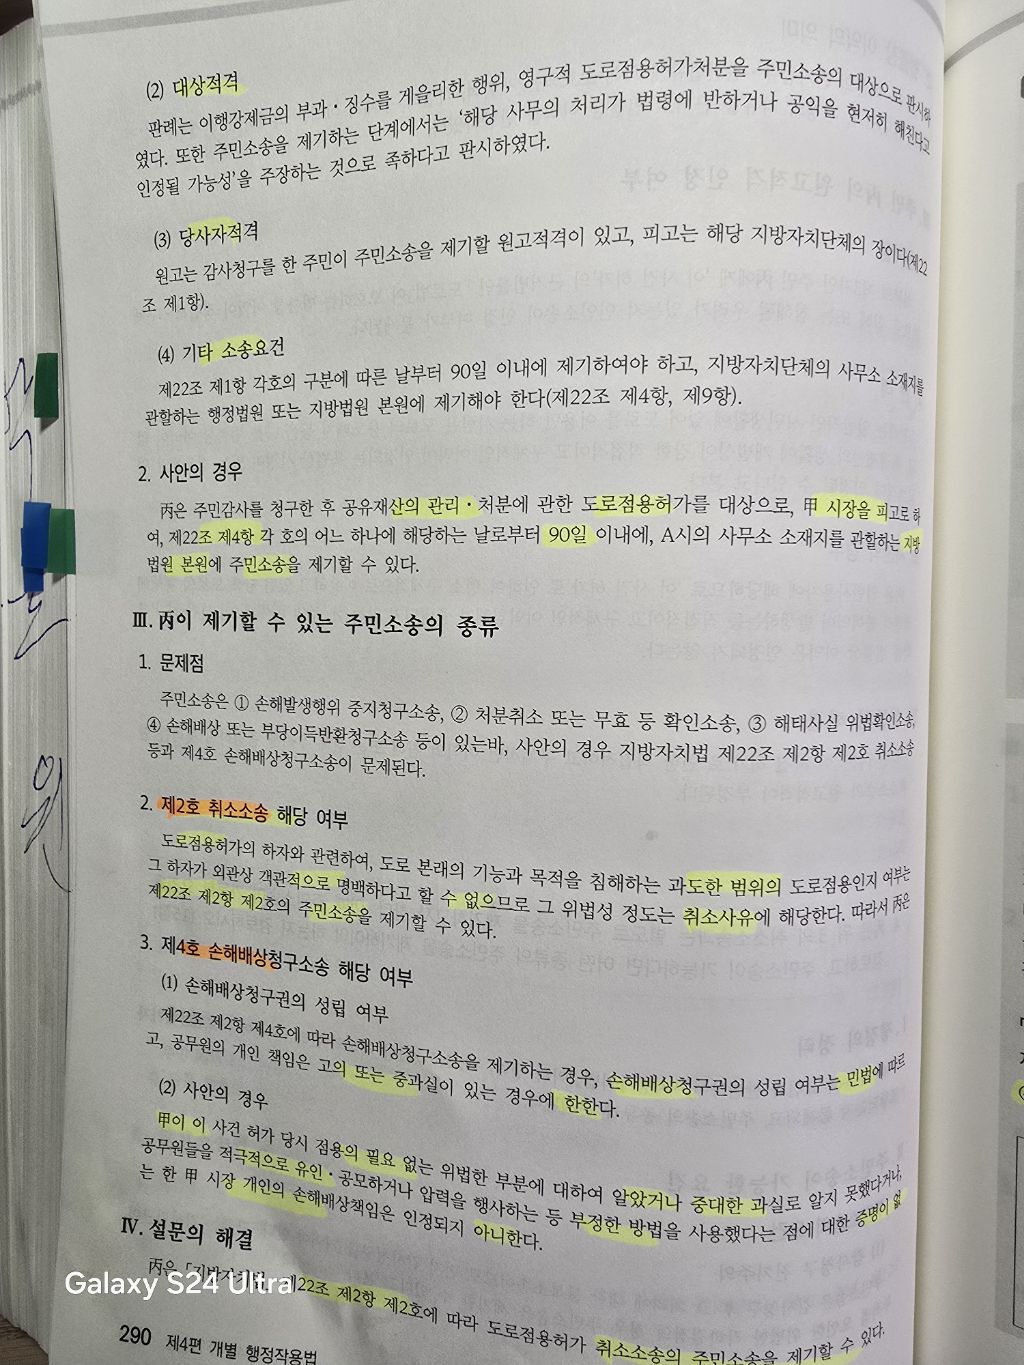 (2) 대상적격
판례는 이행강제금의 부과·징수를 게을리한 행위, 영구적 도로점용허가처분을 주민소송의 대상으로 판시하
였다. 또한 주민소송을 제기하는 단계에서는 '해당 사무의 처리가 법령에 반하거나 공익을 현저히 해친다고
인정될 가능성'을 주장하는 것으로 족하다고 판시하였다.
(3) 당사자적격
원고는 감사청구를 한 주민이 주민소송을 제기할 원고적격이 있고, 피고는 해당 지방자치단체의 장이다(제22
조 제1항).
(4) 기타 소송요건
제22조 제1항 각호의 구분에 따른 날부터 90일 이내에 제기하여야 하고, 지방자치단체의 사무소 소재지를
관할하는 행정법원 또는 지방법원 본원에 제기해야 한다(제22조 제4항, 제9항).
2. 사안의 경우
丙은 주민감사를 청구한 후 공유재산의 관리·처분에 관한 도로점용허가를 대상으로, 甲 시장을 피고로 하
여, 제22조 제4항 각 호의 어느 하나에 해당하는 날로부터 90일 이내에, A시의 사무소 소재지를 관할하는 지방
법원 본원에 주민소송을 제기할 수 있다.
Ⅲ. 丙이 제기할 수 있는 주민소송의 종류
1. 문제점
주민소송은 ① 손해발생행위 중지청구소송, ② 처분취소 또는 무효 등 확인소송, ③ 해태사실 위법확인소송,
④ 손해배상 또는 부당이득반환청구소송 등이 있는바, 사안의 경우 지방자치법 제22조 제2항 제2호 취소소송
등과 제4호 손해배상청구소송이 문제된다.
2. 제2호 취소소송 해당 여부
도로점용허가의 하자와 관련하여, 도로 본래의 기능과 목적을 침해하는 과도한 범위의 도로점용인지 여부는
그 하자가 외관상 객관적으로 명백하다고 할 수 없으므로 그 위법성 정도는 취소사유에 해당한다. 따라서 丙은
제22조 제2항 제2호의 주민소송을 제기할 수 있다.
3. 제4호 손해배상청구소송 해당 여부
(1) 손해배상청구권의 성립 여부
제22조 제2항 제4호에 따라 손해배상청구소송을 제기하는 경우, 손해배상청구권의 성립 여부는 민법에 따르
고, 공무원의 개인 책임은 고의 또는 중과실이 있는 경우에 한한다.
(2) 사안의 경우
甲이 이 사건 허가 당시 점용의 필요 없는 위법한 부분에 대하여 알았거나 중대한 과실로 알지 못했다거나,
공무원들을 적극적으로 유인·공모하거나 압력을 행사하는 등 부정한 방법을 사용했다는 점에 대한 증명이 없
는 한 甲 시장 개인의 손해배상책임은 인정되지 아니한다.
Ⅳ. 설문의 해결
丙은 「지방자치법」 제22조 제2항 제2호에 따라 도로점용허가 취소소송의 주민소송을 제기할 수 있다.
Galaxy S24 Ultra
290 제4편 개별 행정작용법